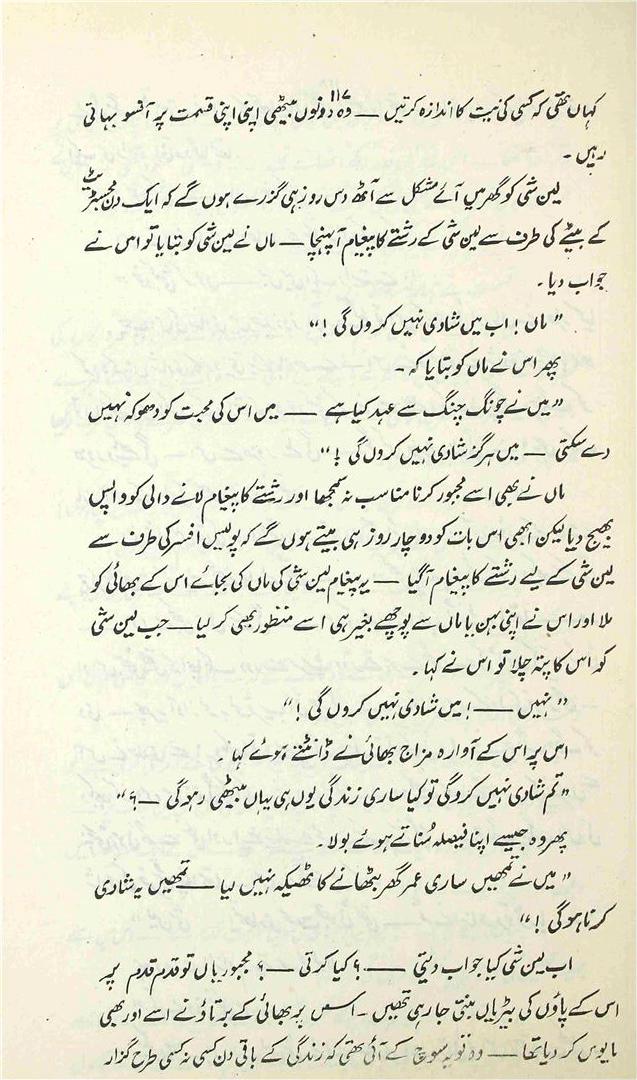 ۱۱۷
کہاں تھی کہ کسی کی نیت کا اندازہ کرتیں — وہ دونوں بیٹھی اپنی اپنی قسمت پر آنسو بہاتی
رہیں ۔
لین شی کو گھر میں آئے مشکل سے آٹھ دس روز ہی گزرے ہوں گے کہ ایک دن مجسٹریٹ
کے بیٹے کی طرف سے لین شی کے رشتے کا پیغام آ پہنچا — ماں نے لین شی کو بتایا تو اس نے
جواب دیا ۔
” ماں ! اب میں شادی نہیں کروں گی ! “
پھر اس نے ماں کو بتایا کہ ۔
” میں نے چونگ چنگ سے عہد کیا ہے — میں اس کی محبت کو دھوکہ نہیں
دے سکتی — میں ہرگز شادی نہیں کروں گی ! “
ماں نے بھی اسے مجبور کرنا مناسب نہ سمجھا اور رشتے کا پیغام لانے والی کو واپس
بھیج دیا لیکن ابھی اس بات کو دو چار روز ہی بیتے ہوں گے کہ پولیس افسر کی طرف سے
لین شی کے لیے رشتے کا پیغام آگیا — یہ پیغام لین شی کی ماں کی بجائے اس کے بھائی کو
ملا اور اس نے اپنی بہن یا ماں سے پوچھے بغیر ہی اسے منظور بھی کر لیا — جب لین شی
کو اس کا پتہ چلا تو اس نے کہا ۔
” نہیں — ! میں شادی نہیں کروں گی ! “
اس پر اس کے آوارہ مزاج بھائی نے ڈانٹتے ہوئے کہا ۔
” تم شادی نہیں کرو گی تو کیا ساری زندگی یوں ہی یہاں بیٹھی رہو گی — ؟ “
پھر وہ جیسے اپنا فیصلہ سُناتے ہوئے بولا ۔
” میں نے تمھیں ساری عمر گھر بٹھانے کا ٹھیکہ نہیں لیا — تمھیں یہ شادی
کرنا ہو گی ! “
اب لین شی کیا جواب دیتی — ؟ کیا کرتی — ؟ مجبوریاں تو قدم قدم پر
اس کے پاؤں کی بیڑیاں بنتی جا رہی تھیں ۔ اس پر بھائی کے برتاؤ نے اسے اور بھی
مایوس کر دیا تھا — وہ تو یہ سوچ کے آئی تھی کہ زندگی کے باقی دن کسی نہ کسی طرح گزار